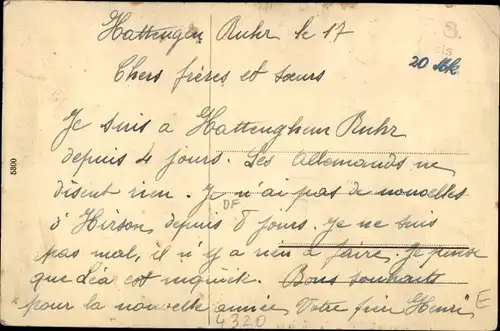 Hattengen Ruhr le 17
S.
20 Mk
Chers frères et sœurs
Je suis a Hattenghem Ruhr
depuis 4 jours. Les Allemands ne
disent rien. Je n'ai pas de nouvelles
DF
d'Hirson depuis 8 jours. Je ne suis
pas mal, il n'y a rien a faire, je pense
que Léa est inquiète. Bons souhaits
pour la nouvelle année Votre frère Henri
E
4320
5800